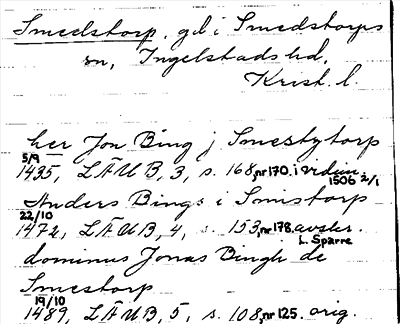 Smedstorp, gd i Smedstorps
sn, Ingelstads hd,
Krist. l.
her Jon Bing j Smestytorp
5/9
1435, LÄUB, 3, s. 168, nr 170. i vidim.
1506 2/1
Anders Bings i Smistorp
22/10
1472, LÄUB, 4, s. 153, nr 178. avskr.
L. Sparre
dominus Jonas Bingh de
Smestorp
19/10
1489, LÄUB, 5, s. 108, nr 125. orig.